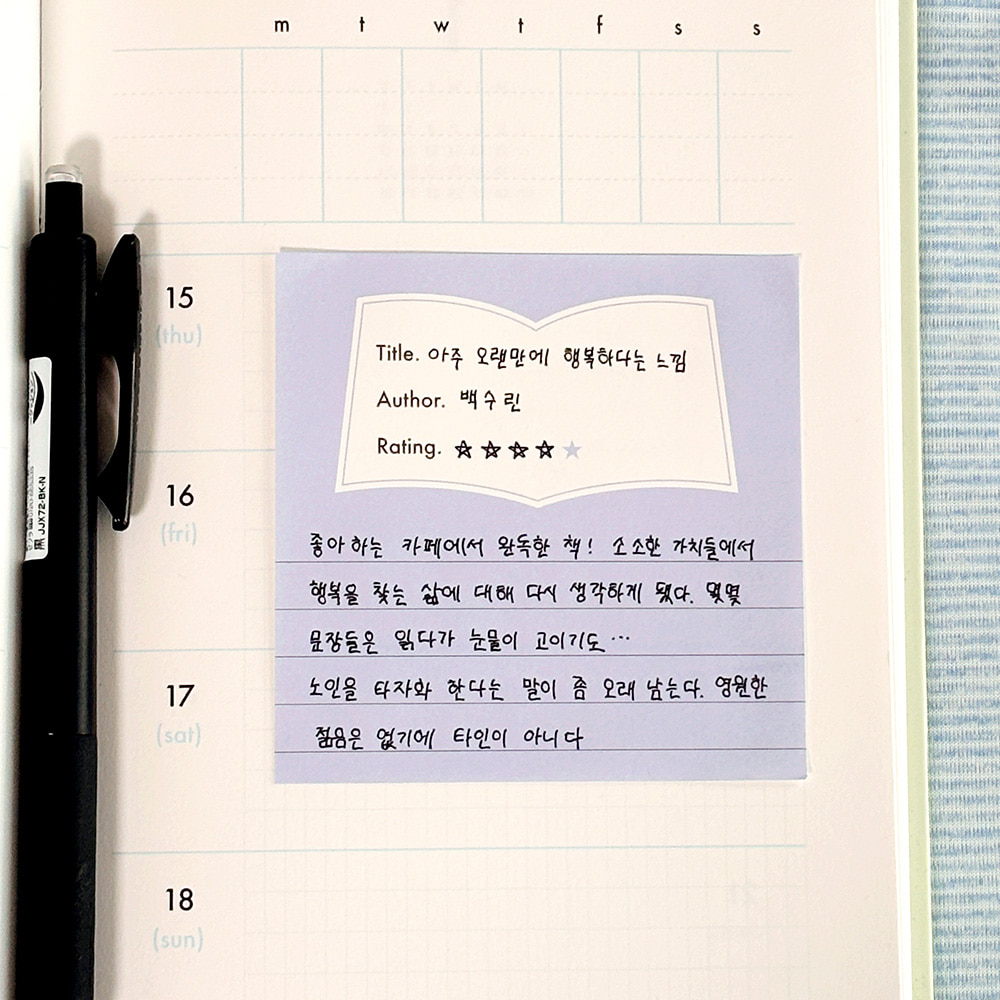 m t w t f s s
15
(thu)
Title. 아주 오랜만에 행복하다는 느낌
Author. 백수린
Rating. ★★★★★
16
(fri)
좋아하는 카페에서 완독한 책! 소소한 가치들에서
행복을 찾는 삶에 대해 다시 생각하게 됐다. 몇몇
문장들은 읽다가 눈물이 고이기도…
노인을 타자화 한다는 말이 좀 오래 남는다. 영원한
젊음은 없기에 타인이 아니다
17
(sat)
18
(sun)
JJX72-BK-N